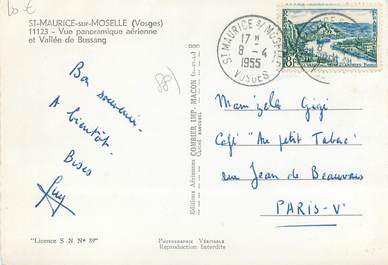 ST-MAURICE-sur-MOSELLE (Vosges)
11123 - Vue panoramique aérienne
et Vallée de Bussang
ST MAURICE S/ MOSELLE
17 H
8 - 4
1955
VOSGES
8F
Bon souvenir.
A bientôt.
Bises
Guy
(88)
Editions Aériennes COMBIER IMP. MACON
Mam'zelle Gigi
Café "Au petit Tabac"
rue Jean de Beauvais
PARIS-V°
"Licence S N N° 59"
PHOTOGRAPHIE VÉRITABLE
Reproduction Interdite